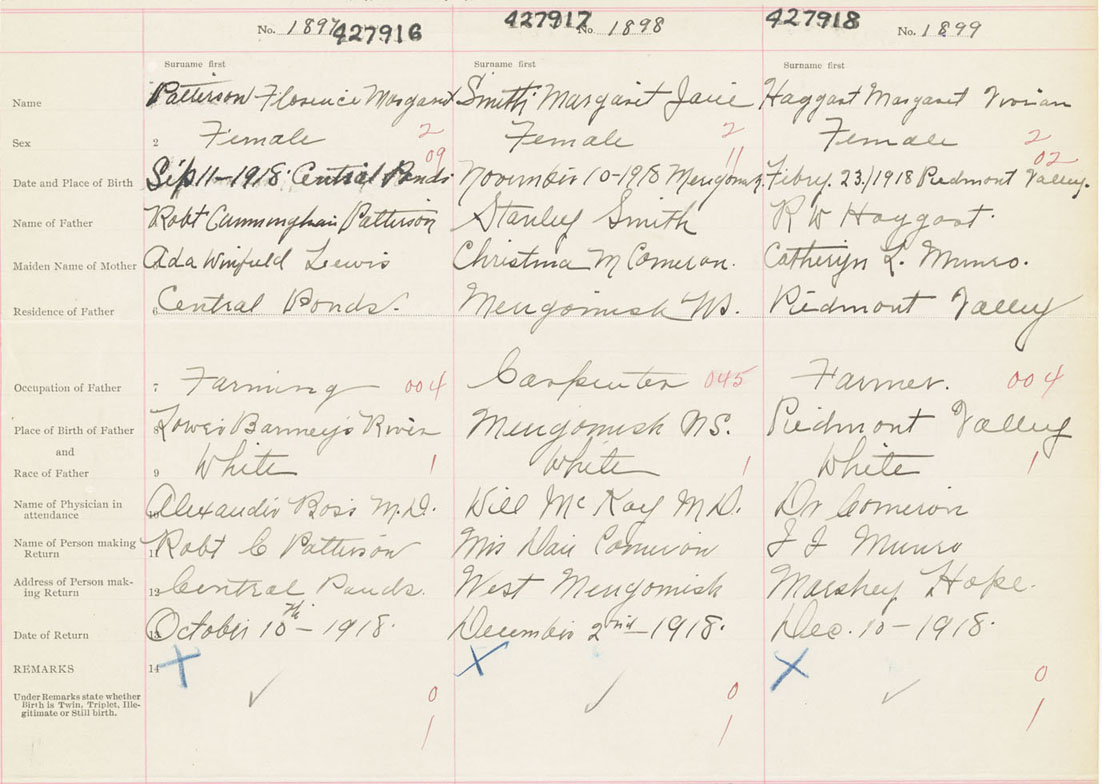 No. 1897 427916 427917 No 1898 427918 No. 1899
Surname first Surname first Surname first
Name Patterson Florence Margaret Smith Margaret Jane Haggart Margaret Vivian
Sex 2 Female 2 Female 2 Female 2
09 11 02
Date and Place of Birth Sep 11-1918. Central Ponds November 10-1918 Merigomish Feby. 23/1918 Piedmont Valley.
Name of Father Robt Cunningham Patterson Stanley Smith R W Haggart.
Maiden Name of Mother Ada Winfield Lewis Christina M Cameron. Catheryn L. Munro.
Residence of Father 6 Central Ponds. Merigomish NS. Piedmont Valley
Occupation of Father 7 Farming 004 Carpenter 045 Farmer. 004
Place of Birth of Father Lower Barneys River Merigomish NS. Piedmont Valley
and
Race of Father 9 White 1 White 1 White 1
Name of Physician in
attendance 10 Alexander Ross M.D. Will McKay M.D. Dr Cameron
Name of Person making
Return 11 Robt C Patterson Mrs Cameron J J Munro
Address of Person mak-
ing Return 12 Central Ponds. West Merigomish Marshey Hope.
Date of Return 13 October 10th - 1918. December 2nd - 1918. Dec. 10 - 1918.
REMARKS 14 X X X
Under Remarks state whether
Birth is Twin, Triplet, Ille-
gitimate or Still birth.
✓ 0 ✓ 0 ✓ 0
1 1 1